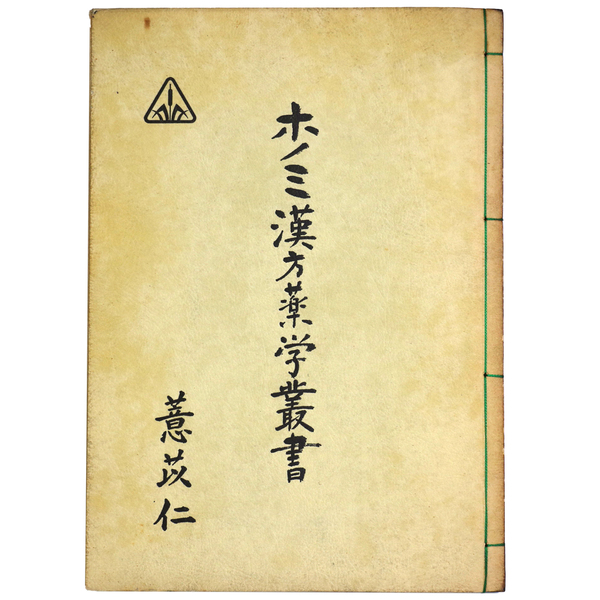 ホノミ漢方薬学叢書
薏苡仁